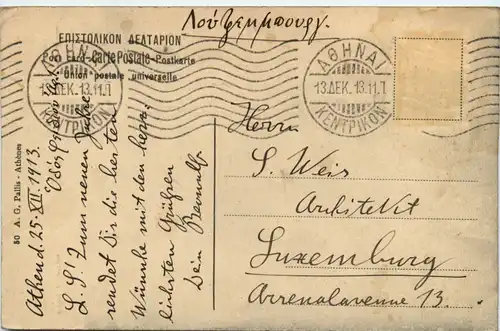 Λουξεμμπουργ.
ΕΠΙΣΤΟΛΙΚΟΝ ΔΕΛΤΑΡΙΟΝ
Post Card-Carte Postale-Postkarte
Union postale universelle
ΑΘΗΝΑΙ
13.ΔΕΚ.13.11.Π
ΚΕΝΤΡΙΚΟΝ
ΑΘΗΝΑΙ
13.ΔΕΚ.13.11.Π
ΚΕΝΤΡΙΚΟΝ
50 A. G. Pallis - Athènes
Athen d. 25. XII. 1913.
L. S! Zum neuen Jahre
sendet Dir die besten
Wünsche mit den herz-
lichsten Grüßen
Dein
Herrn
S. Weis
Architekt
Luxemburg
Arsenalavenue 13.